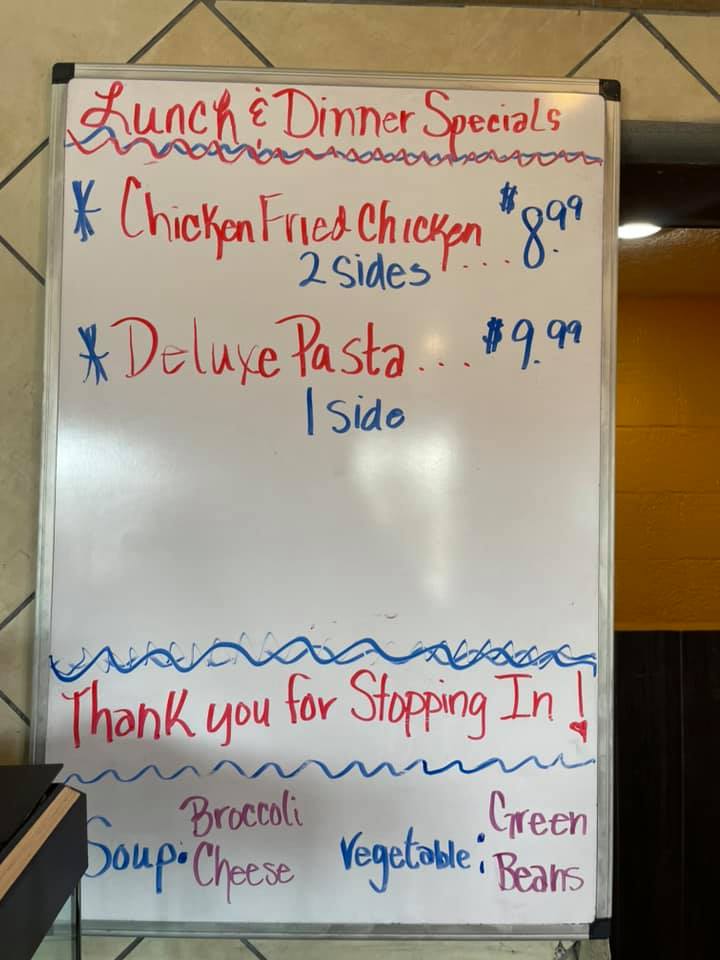 Lunch & Dinner Specials
Chicken Fried Chicken ... $8.99
2 Sides
Deluxe Pasta... $9.99
1 Side
Thank you for Stopping In!
Soup: Broccoli Cheese
Vegetable: Green Beans